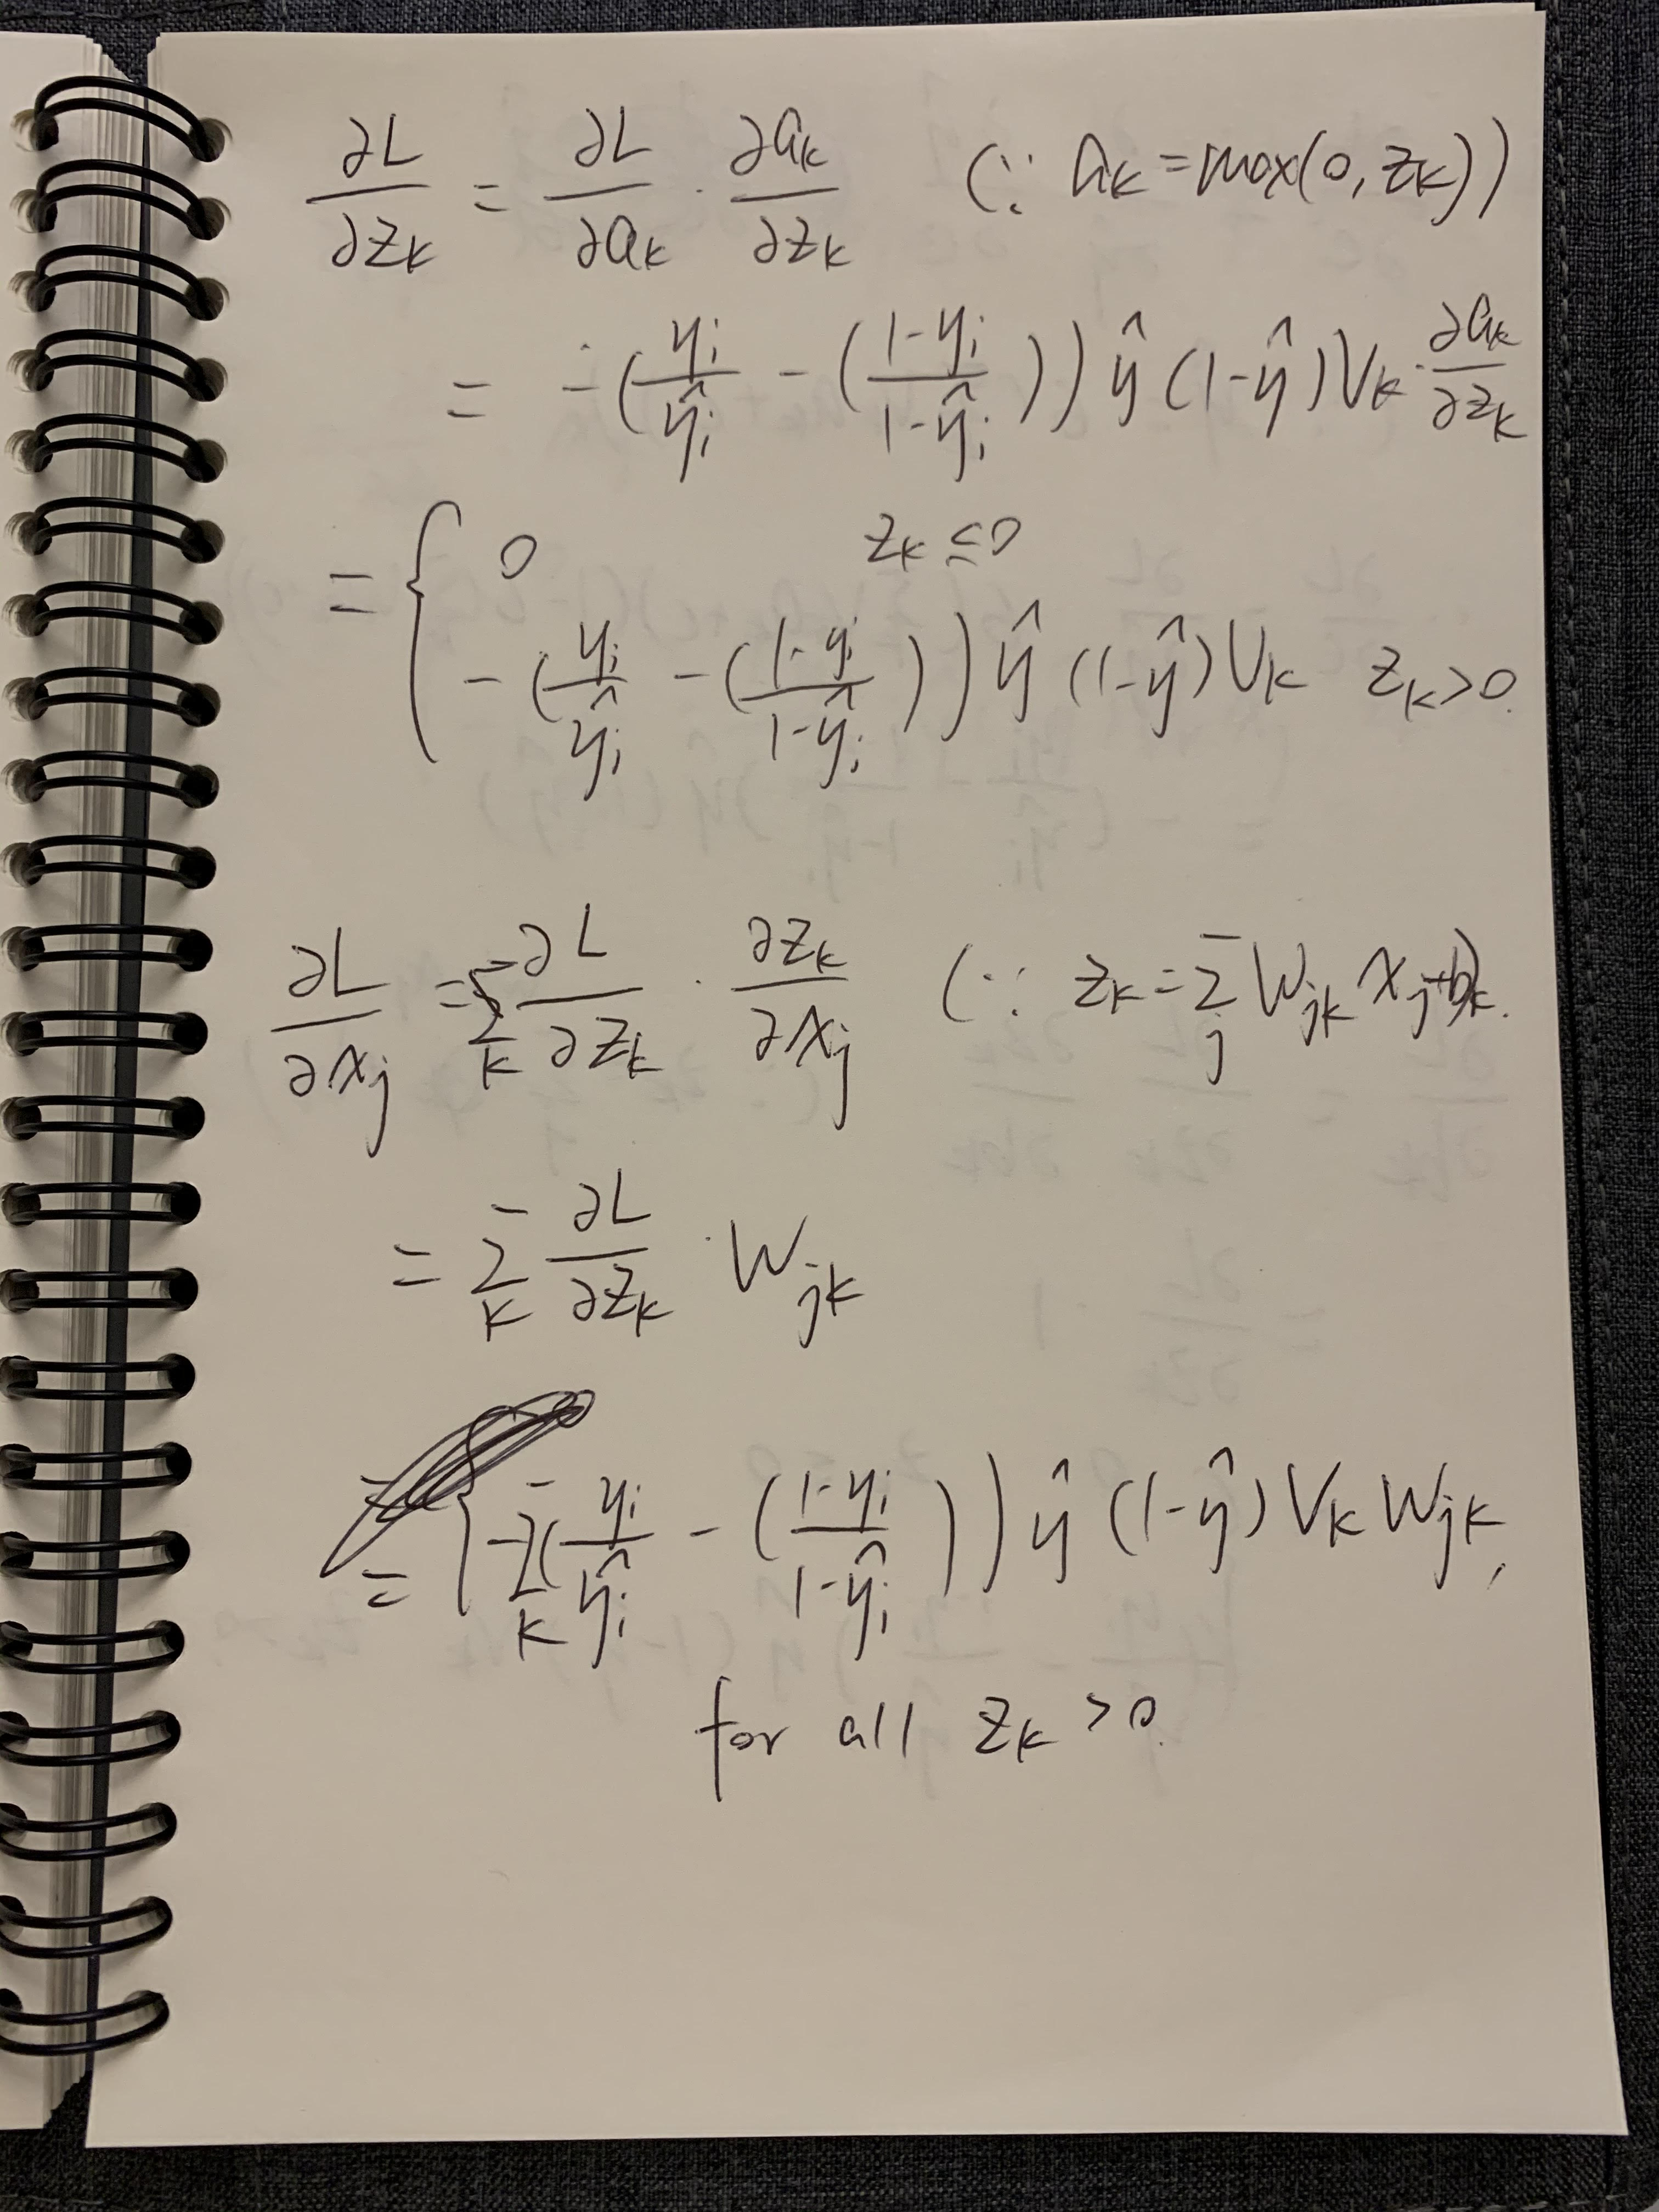 ∂L/∂z_k = ∂L/∂a_k · ∂a_k/∂z_k (∵ a_k = max(0, z_k))
= -(y_i/ŷ_i - ((1-y_i)/(1-ŷ_i))) ŷ (1-ŷ) V_k · ∂a_k/∂z_k
= { 0 z_k ≤ 0
-(y_i/ŷ_i - ((1-y_i)/(1-ŷ_i))) ŷ (1-ŷ) V_k z_k > 0.
∂L/∂x_j = Σ_k ∂L/∂z_k · ∂z_k/∂x_j (∵ z_k = Σ_j W_jk x_j + b_k).
= Σ_k ∂L/∂z_k · W_jk
= { -Σ_k (y_i/ŷ_i - ((1-y_i)/(1-ŷ_i))) ŷ (1-ŷ) V_k W_jk,
for all z_k > 0.